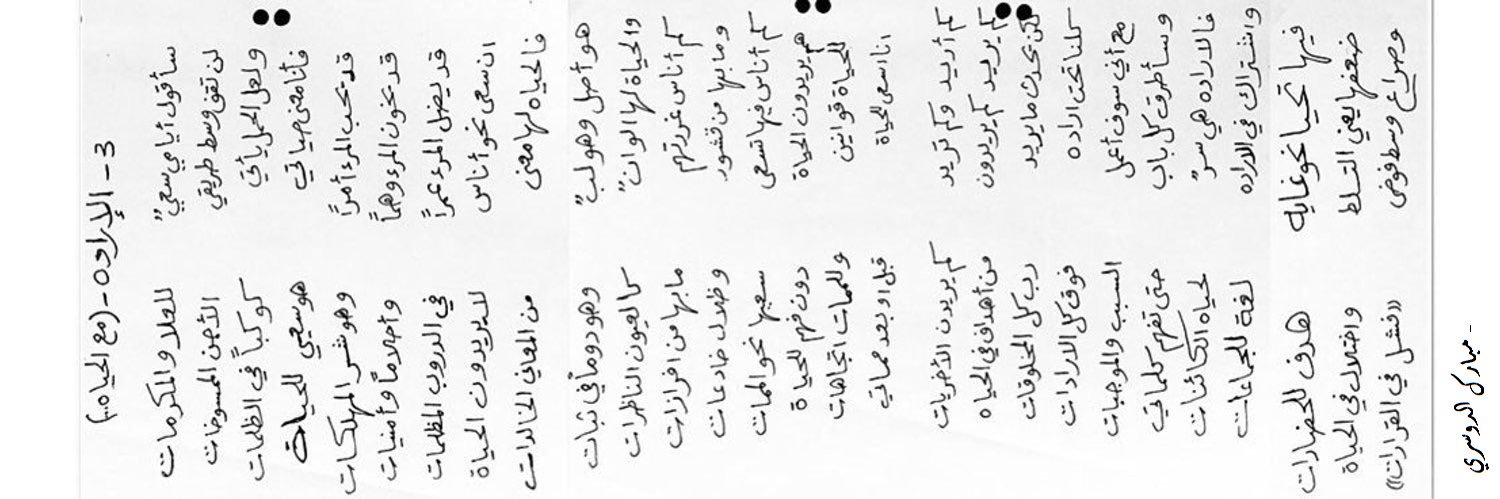 ٣- الإراده - (مع الحياه..)
سأقول أيامي سعي" للعلا والمكرمات
لن تقف وسط طريقي الأجن الممسوخات
ولعل الحمل يأتي كوكباً في الظلمات
فأنا معنى حياتي هو سعيي للحيات
قد يحب المرء أمراً وهو شر المهلكات
قد يخون المرء وهماً وأحلاماً وأمنيات
قد يضل المرء عمراً في الدروب المظلمات
ان سعى نحو أناس لا يريدون الحياة
فالحياه لها معنى من المعاني الخالدات
هو أصل وهو لب" وهو دوماً في ثبات
والحياة لها الوان" كالعيون الناظرات
كم أناس غررتهم ما بها من افرازات
وما بها من قشور وظلال خادعات
كم أناس فيها تسعى سعيها نحو الممات
هم يريدون الحياة دون فهم للحياة
للحياة قوانين وللممات اتجاهات
انا اسعى للحياة قبل او بعد مماتي
كم أريد وكم تريد كم يريدن الأخريات
كم يريد كم يريدون من أهداف في الحياه
لكن يحدث ما يريد رب كل المخلوقات
كلنا تحت اراده فوق كل الارادات
مع أني سوف أعمل السبب والموجبات
وسأطرق كل باب حتى تفهم كلماتي
فالاراده هي سر" لحياه الكائنات
واشتراك في الاراده لغة للجماعات
فيها تحيا نحو غايه هدف للحضارات
ضعفها يعني التسلط واختلال في الحياة
وصراع وسط فوضى «فشل في القرارات»
- مبارك الدوسري